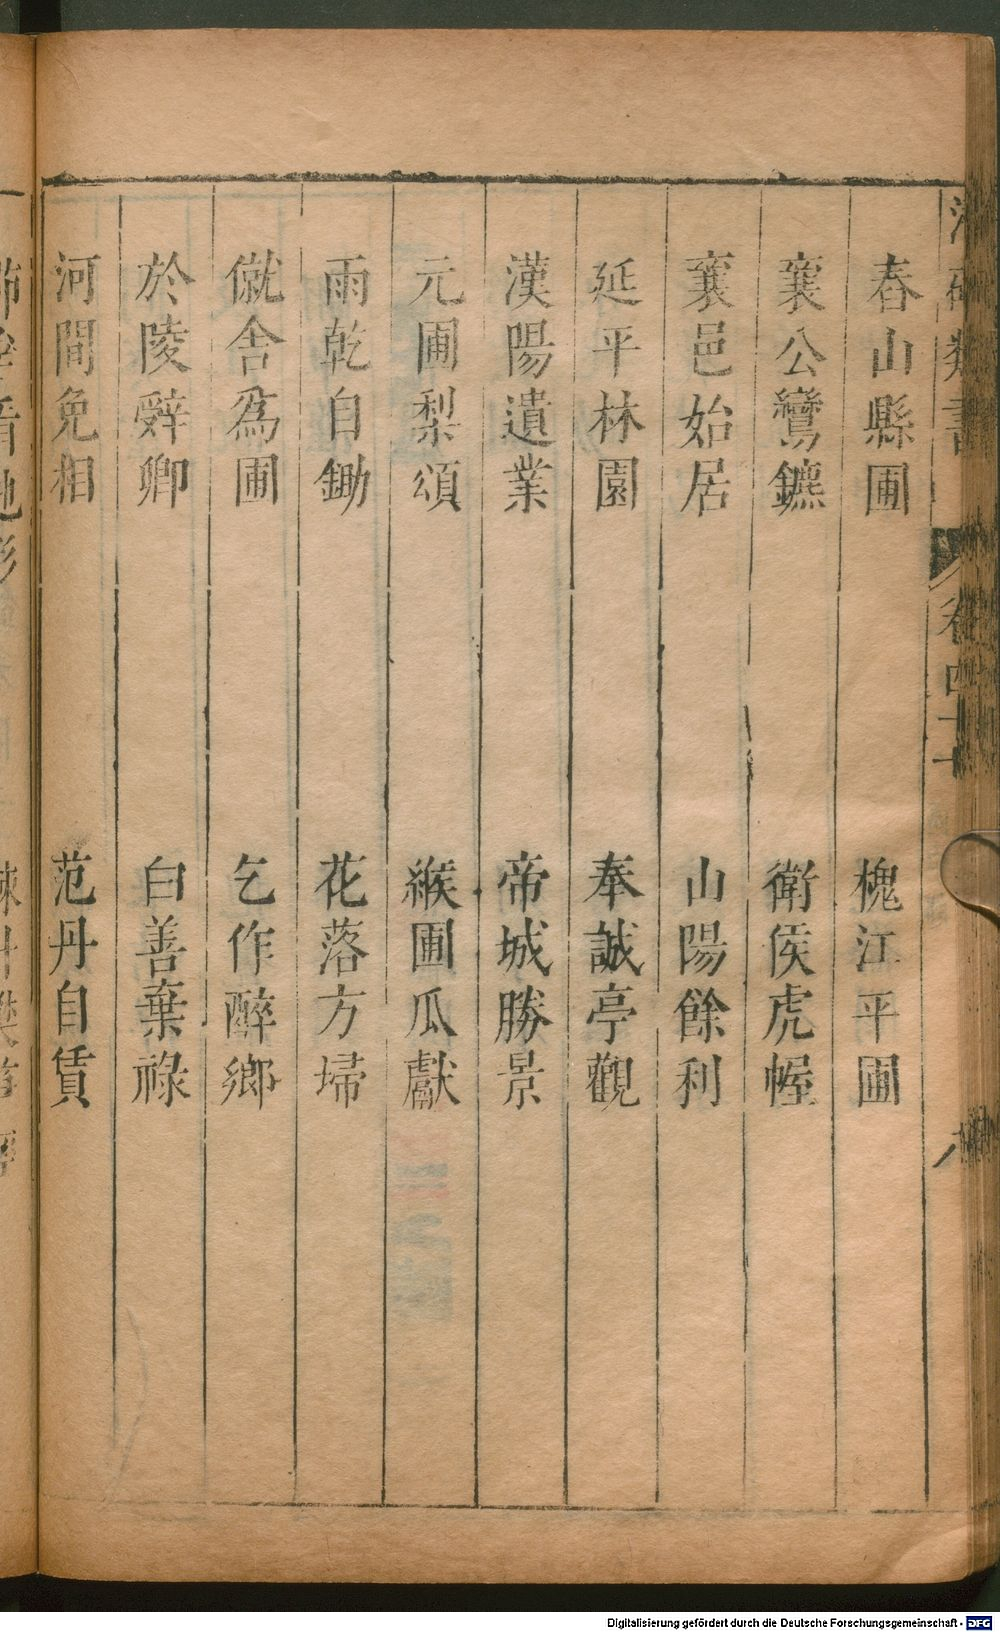 春山縣圃　槐江平圃
襄公鸞鑣　衛侯虎幄
襄邑始居　山陽餘利
延平林園　奉誠亭觀
漢陽遺業　帝城勝景
元圃梨頌　緱圃瓜獻
雨乾自鋤　花落方埽
僦舍爲圃　乞作醉鄉
於陵辭卿　白善棄祿
河間免相　范丹自賃
Digitalisierung gefördert durch die Deutsche Forschungsgemeinschaft - DFG